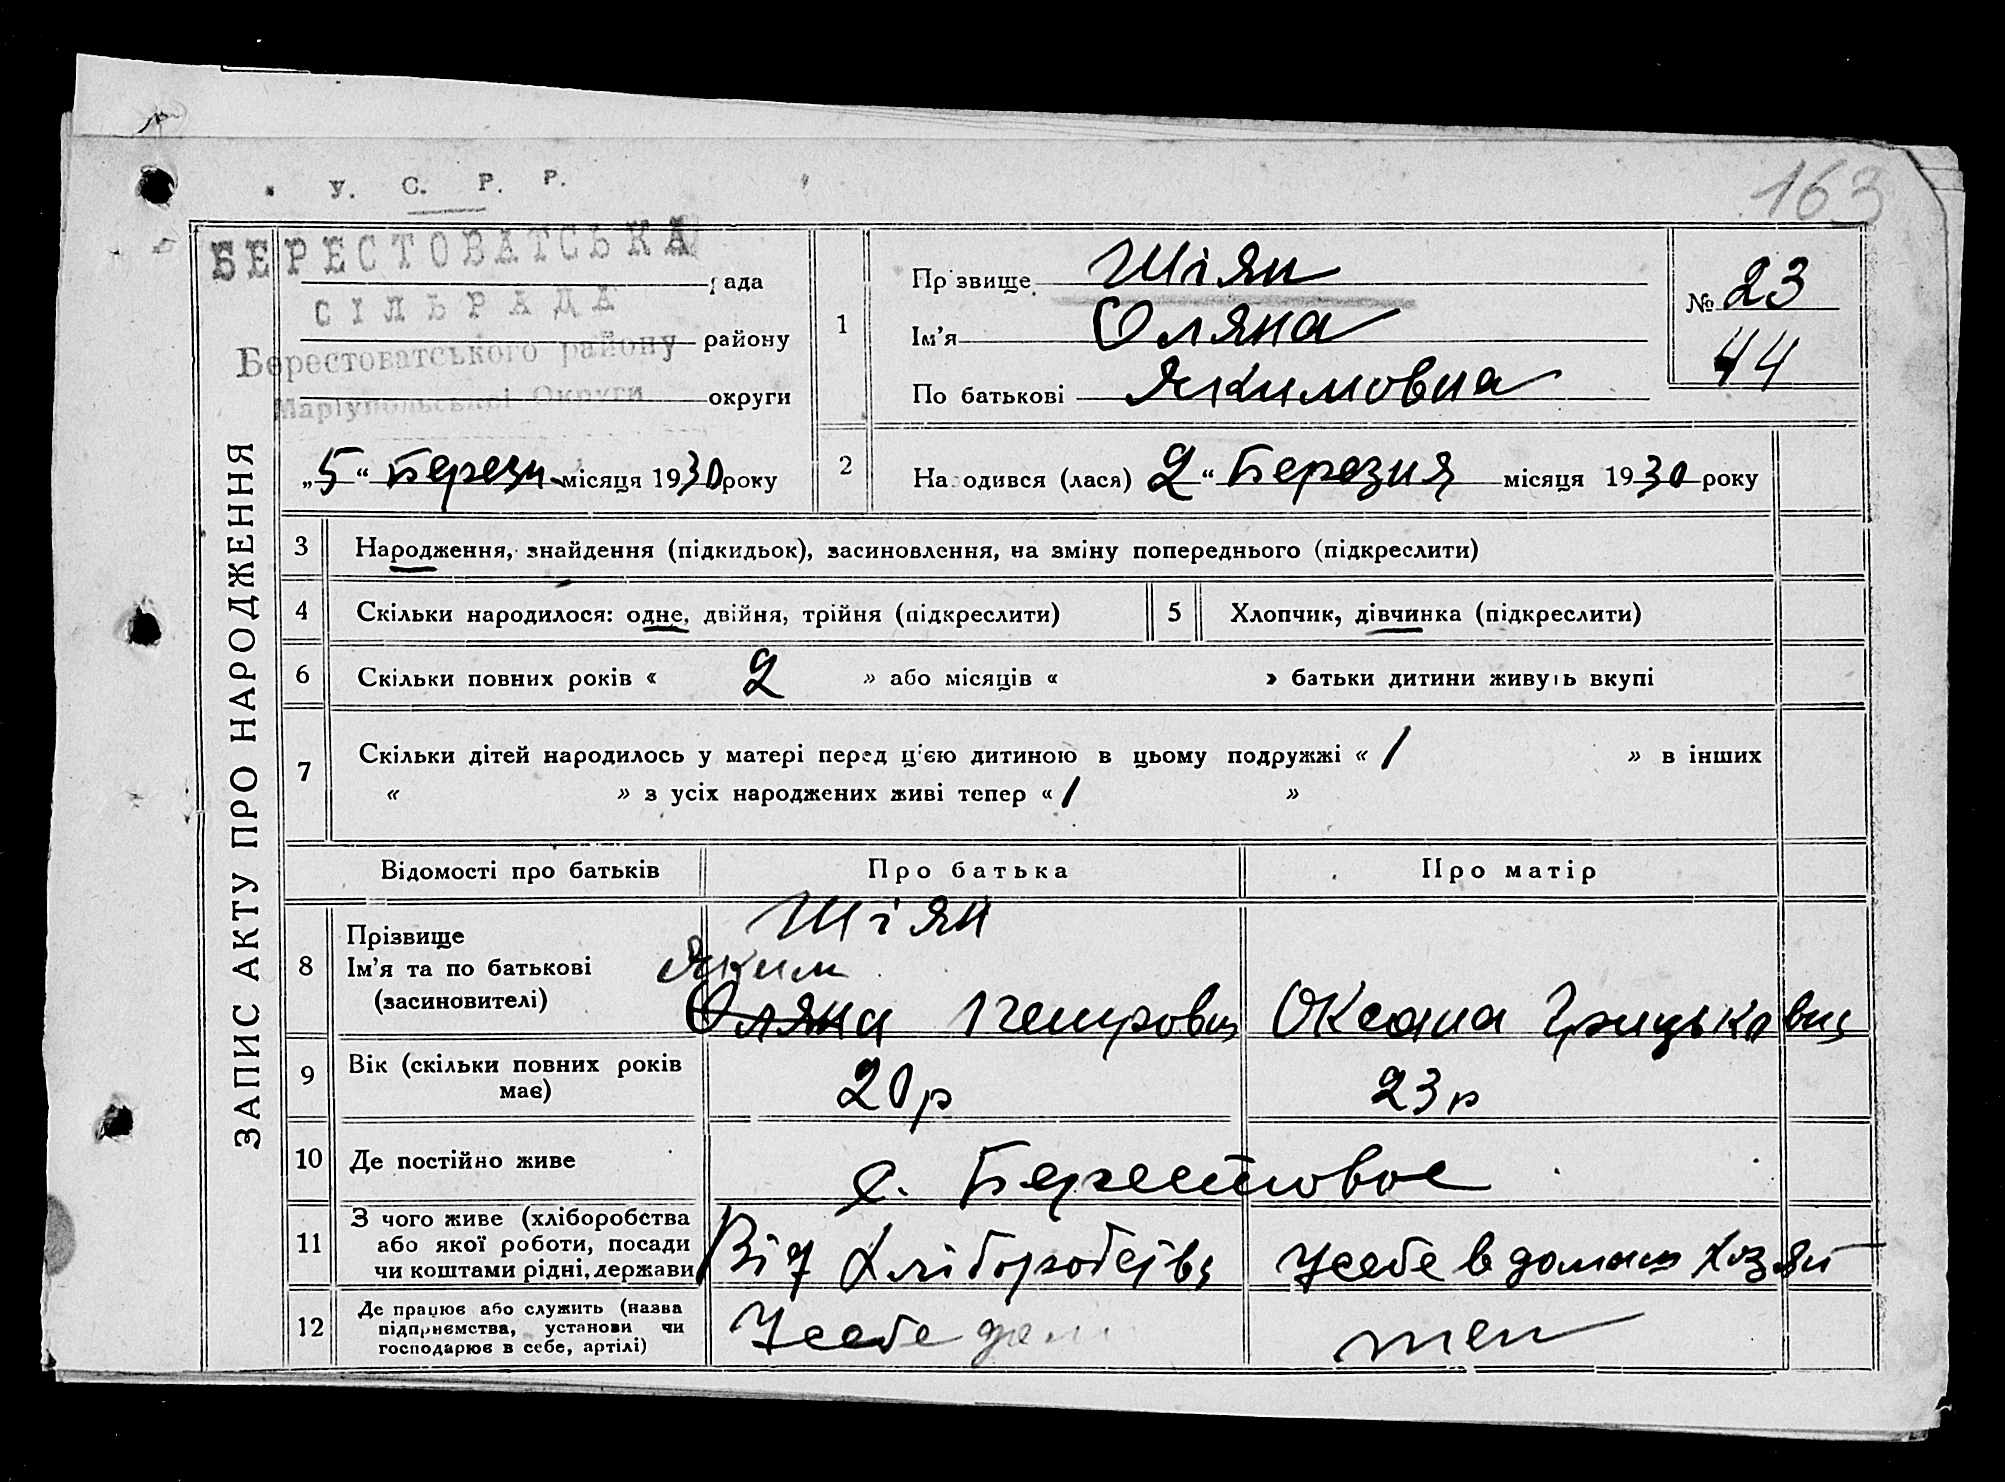 163
У. С. Р. Р.
БЕРЕСТОВАТСЬКА
рада
СІЛЬРАДА
району
Берестоватського району
округи
Маріупольської Округи
„5“ Березн місяця 1930 року
ЗАПИС АКТУ ПРО НАРОДЖЕННЯ
1
Прізвище Шіян
Ім’я Оляна
По батькові Якимовна
№ 23
44
2
Народився (лася) 2 “ Березня місяця 1930 року
3 Народження, знайдення (підкидьок), засиновлення, на зміну попереднього (підкреслити)
4 Скільки народилося: одне, двійня, трійня (підкреслити)
5 Хлопчик, дівчинка (підкреслити)
6 Скільки повних років « 2 » або місяців « » батьки дитини живуть вкупі
7 Скільки дітей народилось у матері перед ц'єю дитиною в цьому подружжі « 1 » в інших
« » з усіх народжених живі тепер « 1 »
Відомості про батьків Про батька Про матір
8 Прізвище
Ім’я та по батькові
(засиновителі)
Шіян
Яким
Оляна Петров
Оксана Грицьковна
9 Вік (скільки повних років
має)
20 р
23 р
10 Де постійно живе
с. Берестовое
11 З чого живе (хліборобства
або якої роботи, посади
чи коштами рідні, держави
Від Хліборобства
У себе в домаш хозяй
12 Де працює або служить (назва
підприємства, установи чи
господарює в себе, артілі)
У себе дом
теж